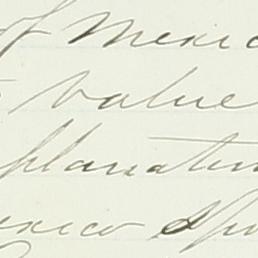 of Mexico
value
planation
exico Spo